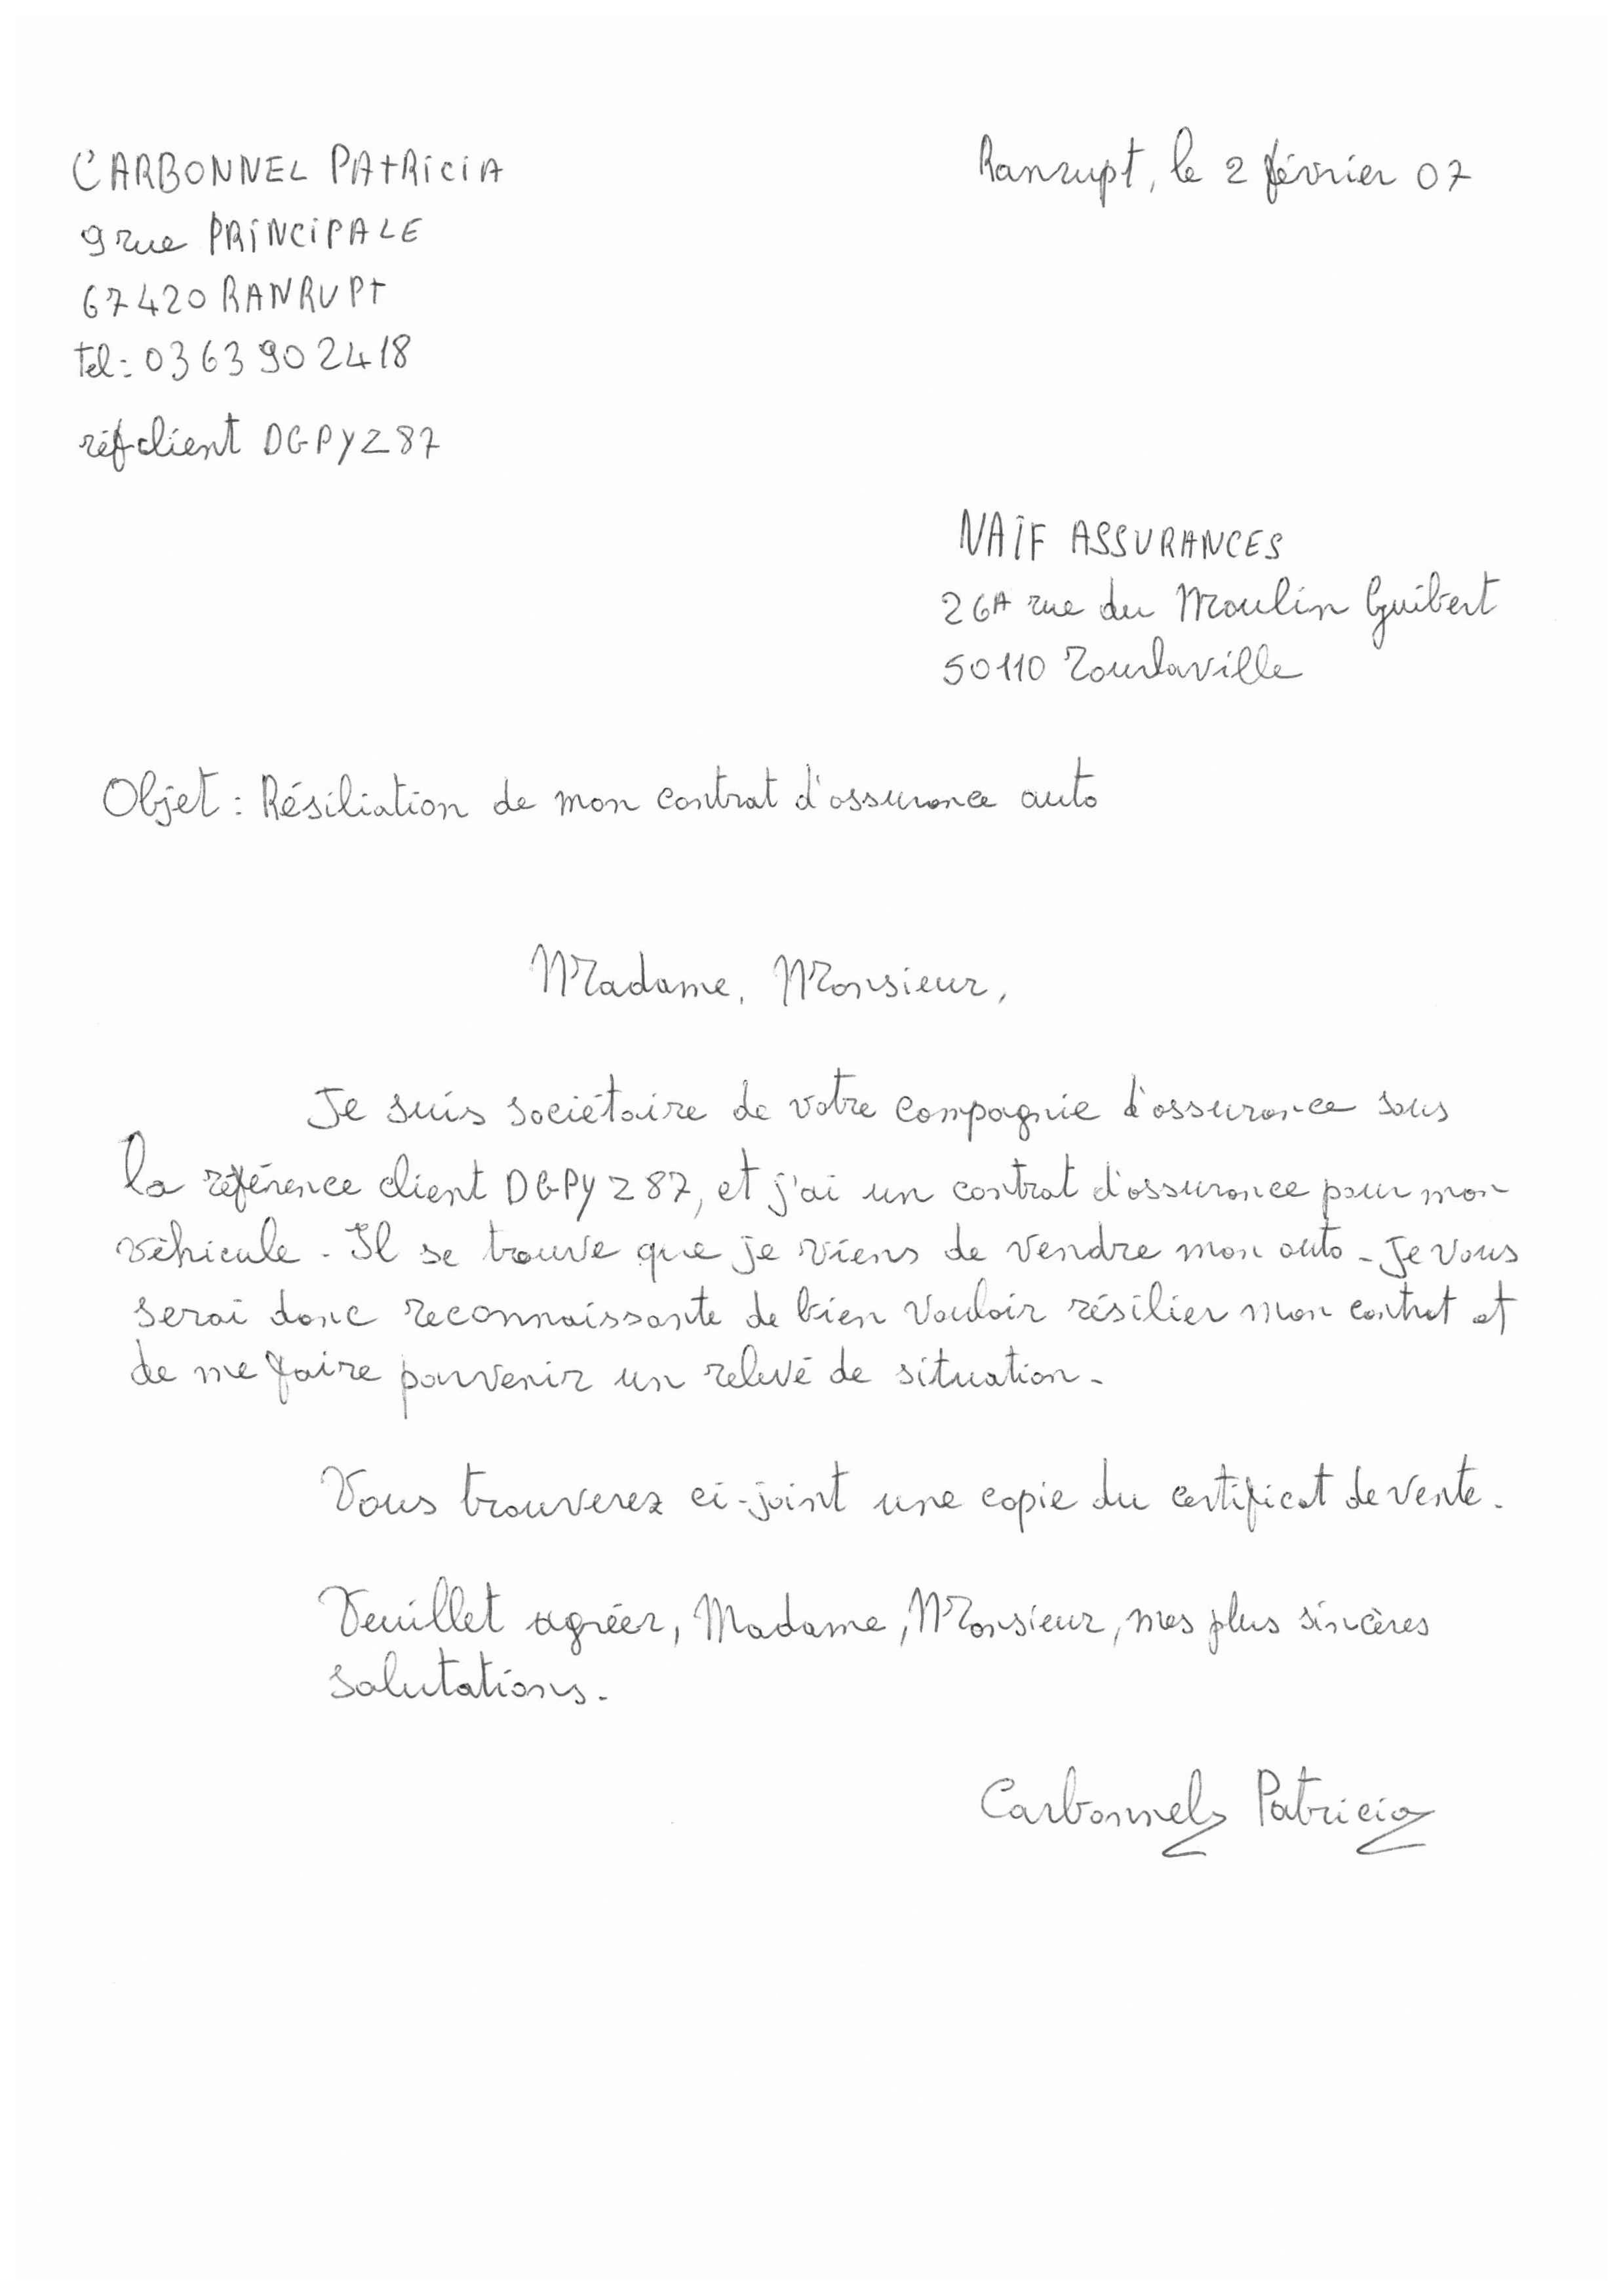 CARBONNEL PATRICIA
Ranrupt, le 2 février 07
9 rue PRINCIPALE
67420 RANRUPT
tel: 0363902418
réf client DGPYZ87
NAÏF ASSURANCES
26A rue du Moulin Guibert
50110 Tourlaville
Objet : Résiliation de mon contrat d'assurance auto
Madame, Monsieur,
Je suis sociétaire de votre compagnie d'assurance sous
la référence client DGPYZ87, et j'ai un contrat d'assurance pour mon
véhicule. Il se trouve que je viens de vendre mon auto. Je vous
serai donc reconnaissante de bien vouloir résilier mon contrat et
de me faire parvenir un relevé de situation.
Vous trouverez ci-joint une copie du certificat de vente.
Veuillet agréer, Madame, Monsieur, mes plus sincères
salutations.
Carbonnel Patricia